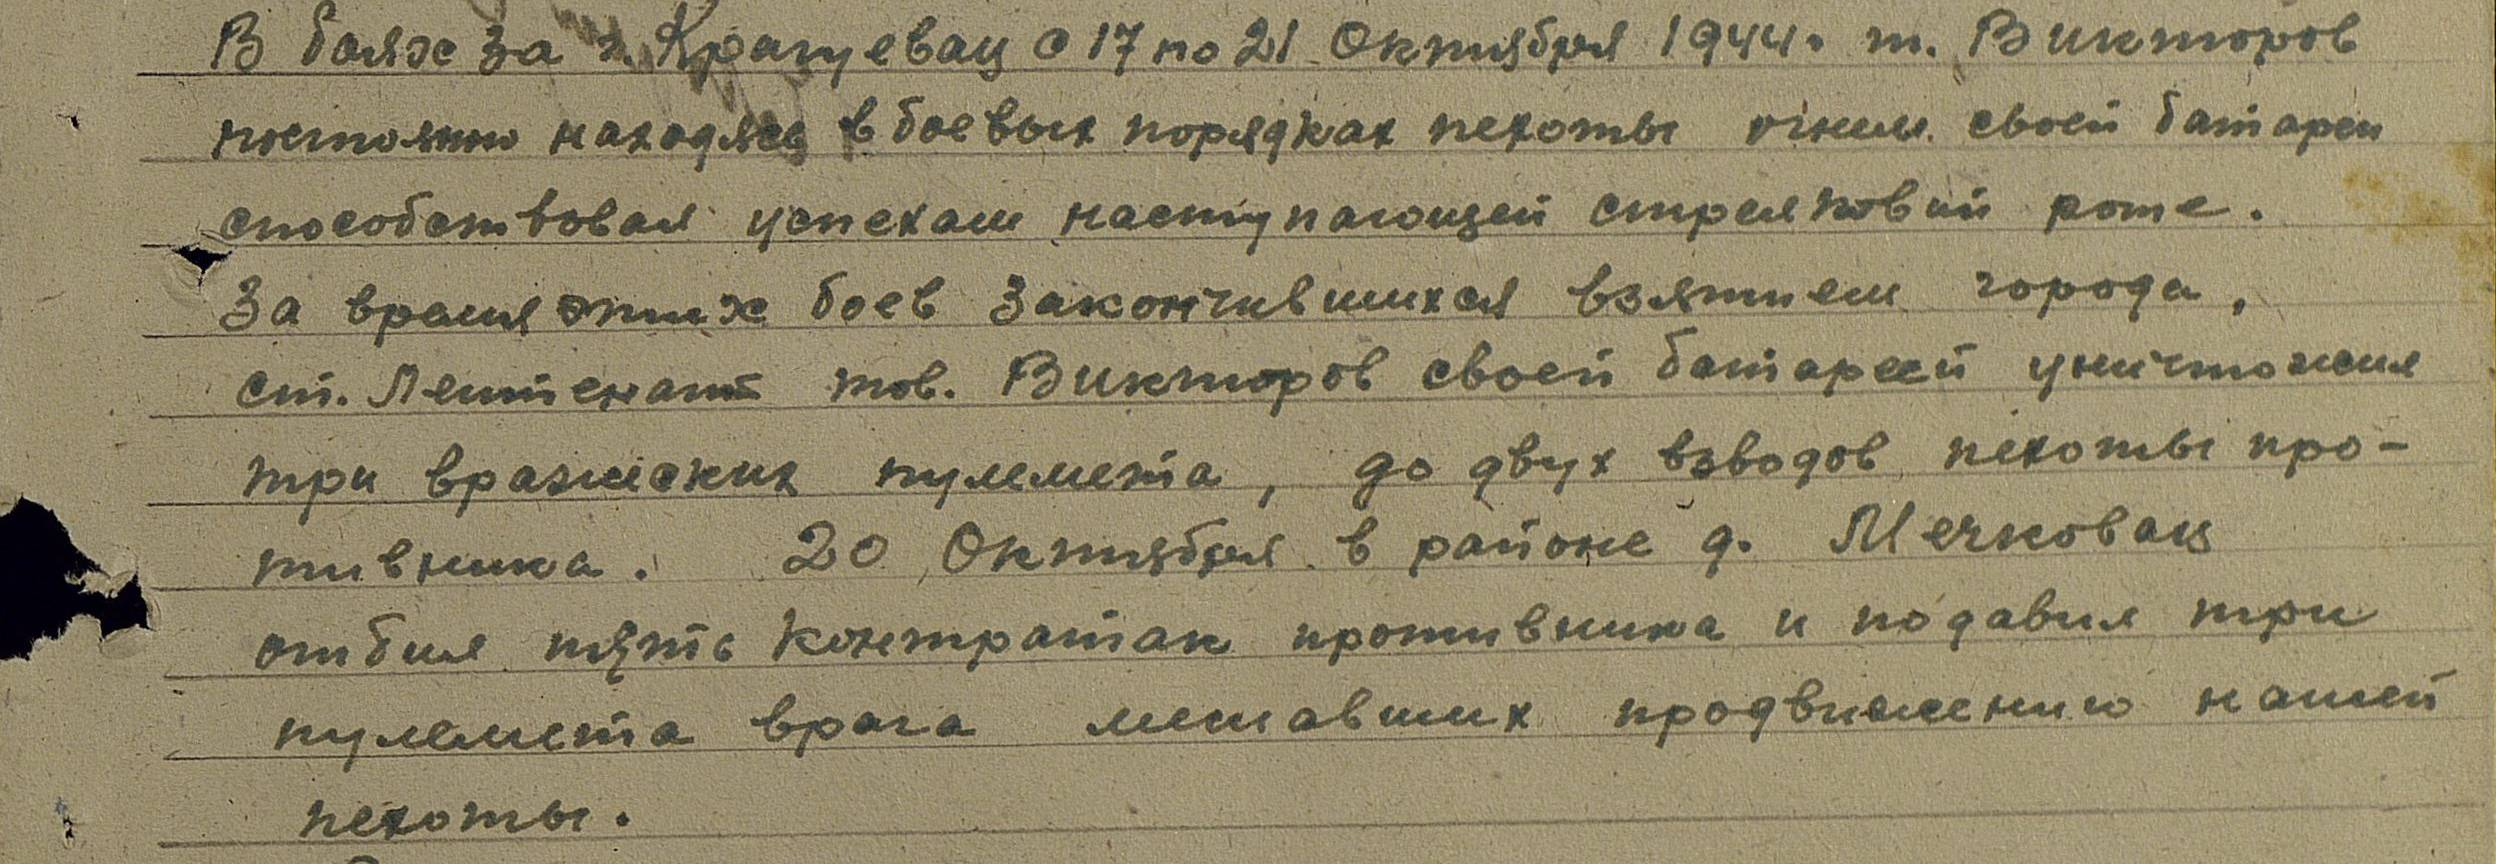 В боях за г. Крагуевац с 17 по 21 Октября 1944г. т. Викторов
постоянно находясь в боевых порядках пехоты огнем своей батареи
способствовал успехам наступающей стрелковой роте.
За время этих боев закончившихся взятием города,
ст. Лейтенант тов. Викторов своей батареей уничтожил
три вражеских пулемета, до двух взводов пехоты про-
тивника. 20 Октября в районе д. Мечковац
отбил пять контратак противника и подавил три
пулемета врага мешавших продвижению нашей
пехоты.